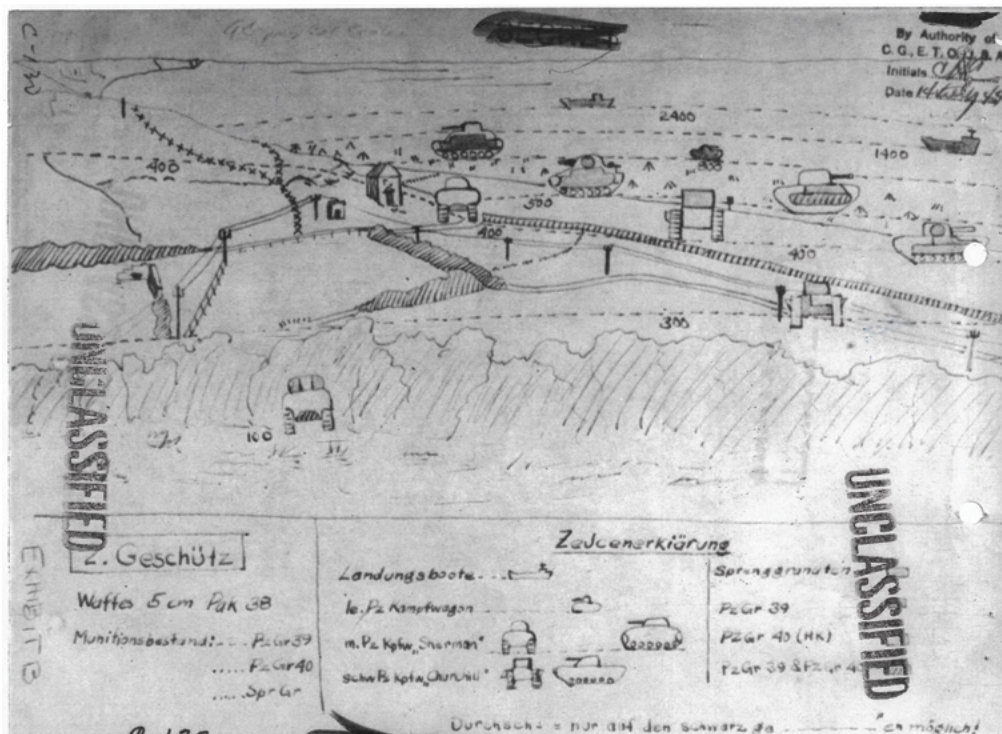 C-132
By Authority of
C. G., E. T. O., U. S. A.
Initials
Date
2400
1400
400
800
500
400
400
300
100
UNCLASSIFIED
UNCLASSIFIED
EXHIBIT B
2. Geschütz
Waffe: 5 cm Pak 38
Munitionsbestand: --- PzGr 39
..... PzGr 40
..... Spr Gr
Zeicenerklärung
Landungsboote
le. Pz Kampfwagen
m. Pz Kpfw. „Sherman"
schw Pz Kpfw. „Churchill"
Sprenggranaten
PzGr 39
PzGr 40 (HK)
PzGr 39 & PzGr 40
nur auf den schwarz
möglich!